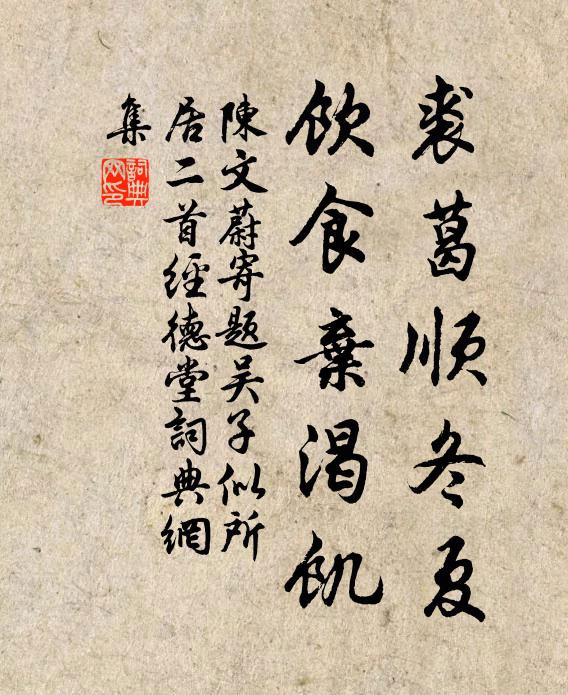 裘葛順冬夏
飲食棄渴飢
陳文蔚寄題吴子似所
居二首經德堂詞典網
集
詞典網印